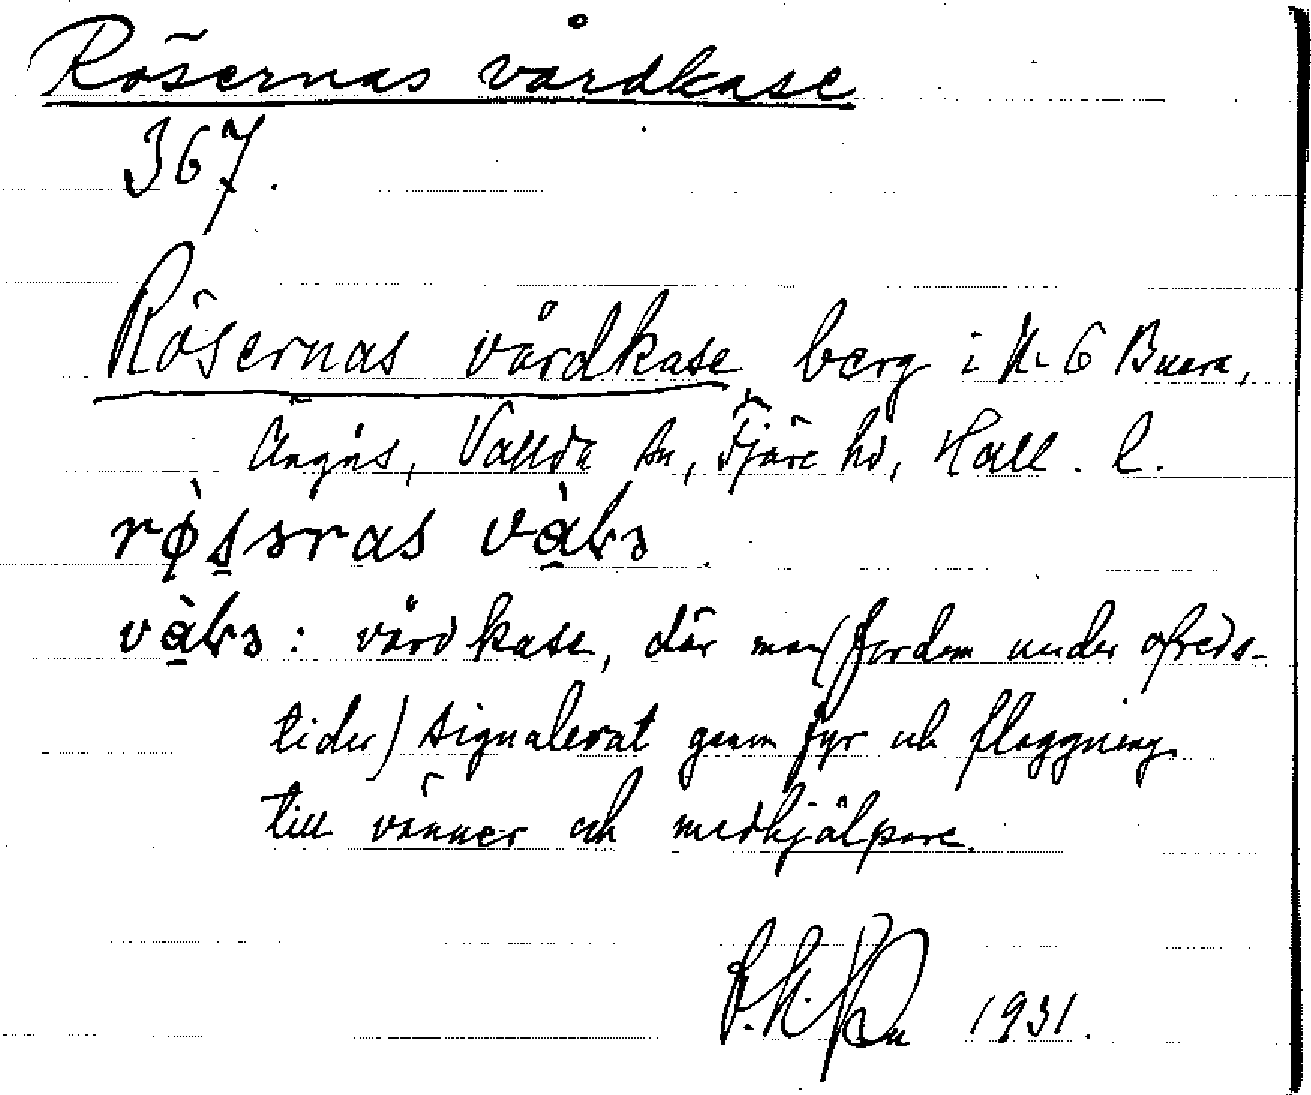 Rösernas vårdkase
367.
Rösernas vårdkase, berg i N:o 6 Buera,
Ängås, Vallda sn, Fjäre hd, Hall. l.
vårdkase, där man (fordom under ofreds-
tider) signalerat genom fyr och flaggning
till vänner och medhjälpare.
1931.